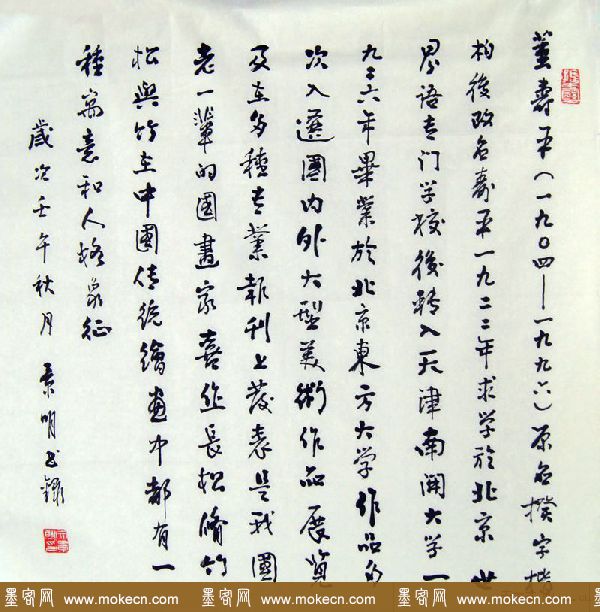 董壽平(一九〇四—一九九六)原名揆字楷
柏後改名壽平一九二二年求学於北京世
界语专门学校後转入天津南開大学一
九二六年畢業於北京東方大学作品多
次入選國内外大型美術作品展览
及在多種专業報刊上發表是我國
老一輩的國畫家喜作長松脩竹
松與竹在中國传统繪画中都有一
種寓意和人格象征
歲次壬午秋月 景明书録
墨客网 www.mokecn.com 墨客网 www.mokecn.com 墨客网 www.mokecn.com